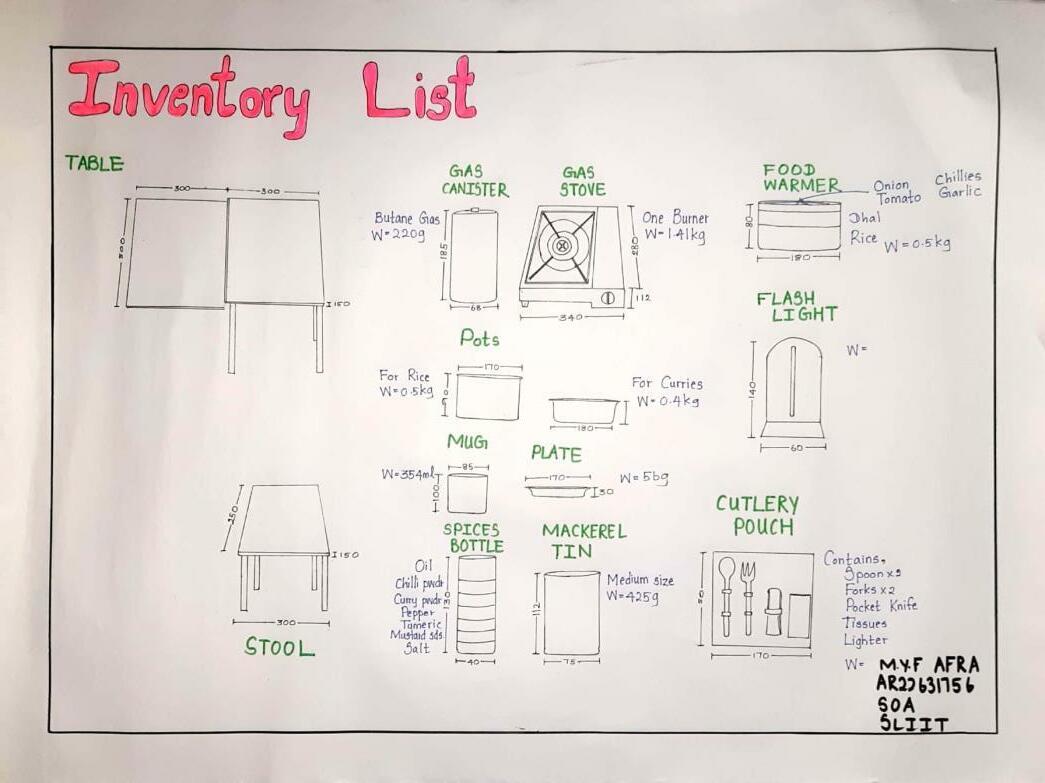 Inventory List
TABLE
300
300
300
150
GAS
CANISTER
Butane Gas
W=220g
185
68
GAS
STOVE
One Burner
W=1.41kg
280
112
340
FOOD
WARMER
Onion
Tomato
Chillies
Garlic
Dhal
Rice
W=0.5kg
80
180
FLASH
LIGHT
W=
140
60
Pots
170
For Rice
W=0.5kg
For Curries
W=0.4kg
180
MUG
85
W=354ml
100
PLATE
170
30
W=56g
STOOL
250
150
300
SPICES
BOTTLE
Oil
Chilli pwdr
Curry pwdr
Pepper
Tumeric
Mustard sds
Salt
40
MACKEREL
TIN
Medium size
W=425g
112
75
CUTLERY
POUCH
Contains,
Forks x2
Pocket Knife
Tissues
Lighter
W=
170
M.Y.F AFRA
AR22631756
SOA
SLIIT